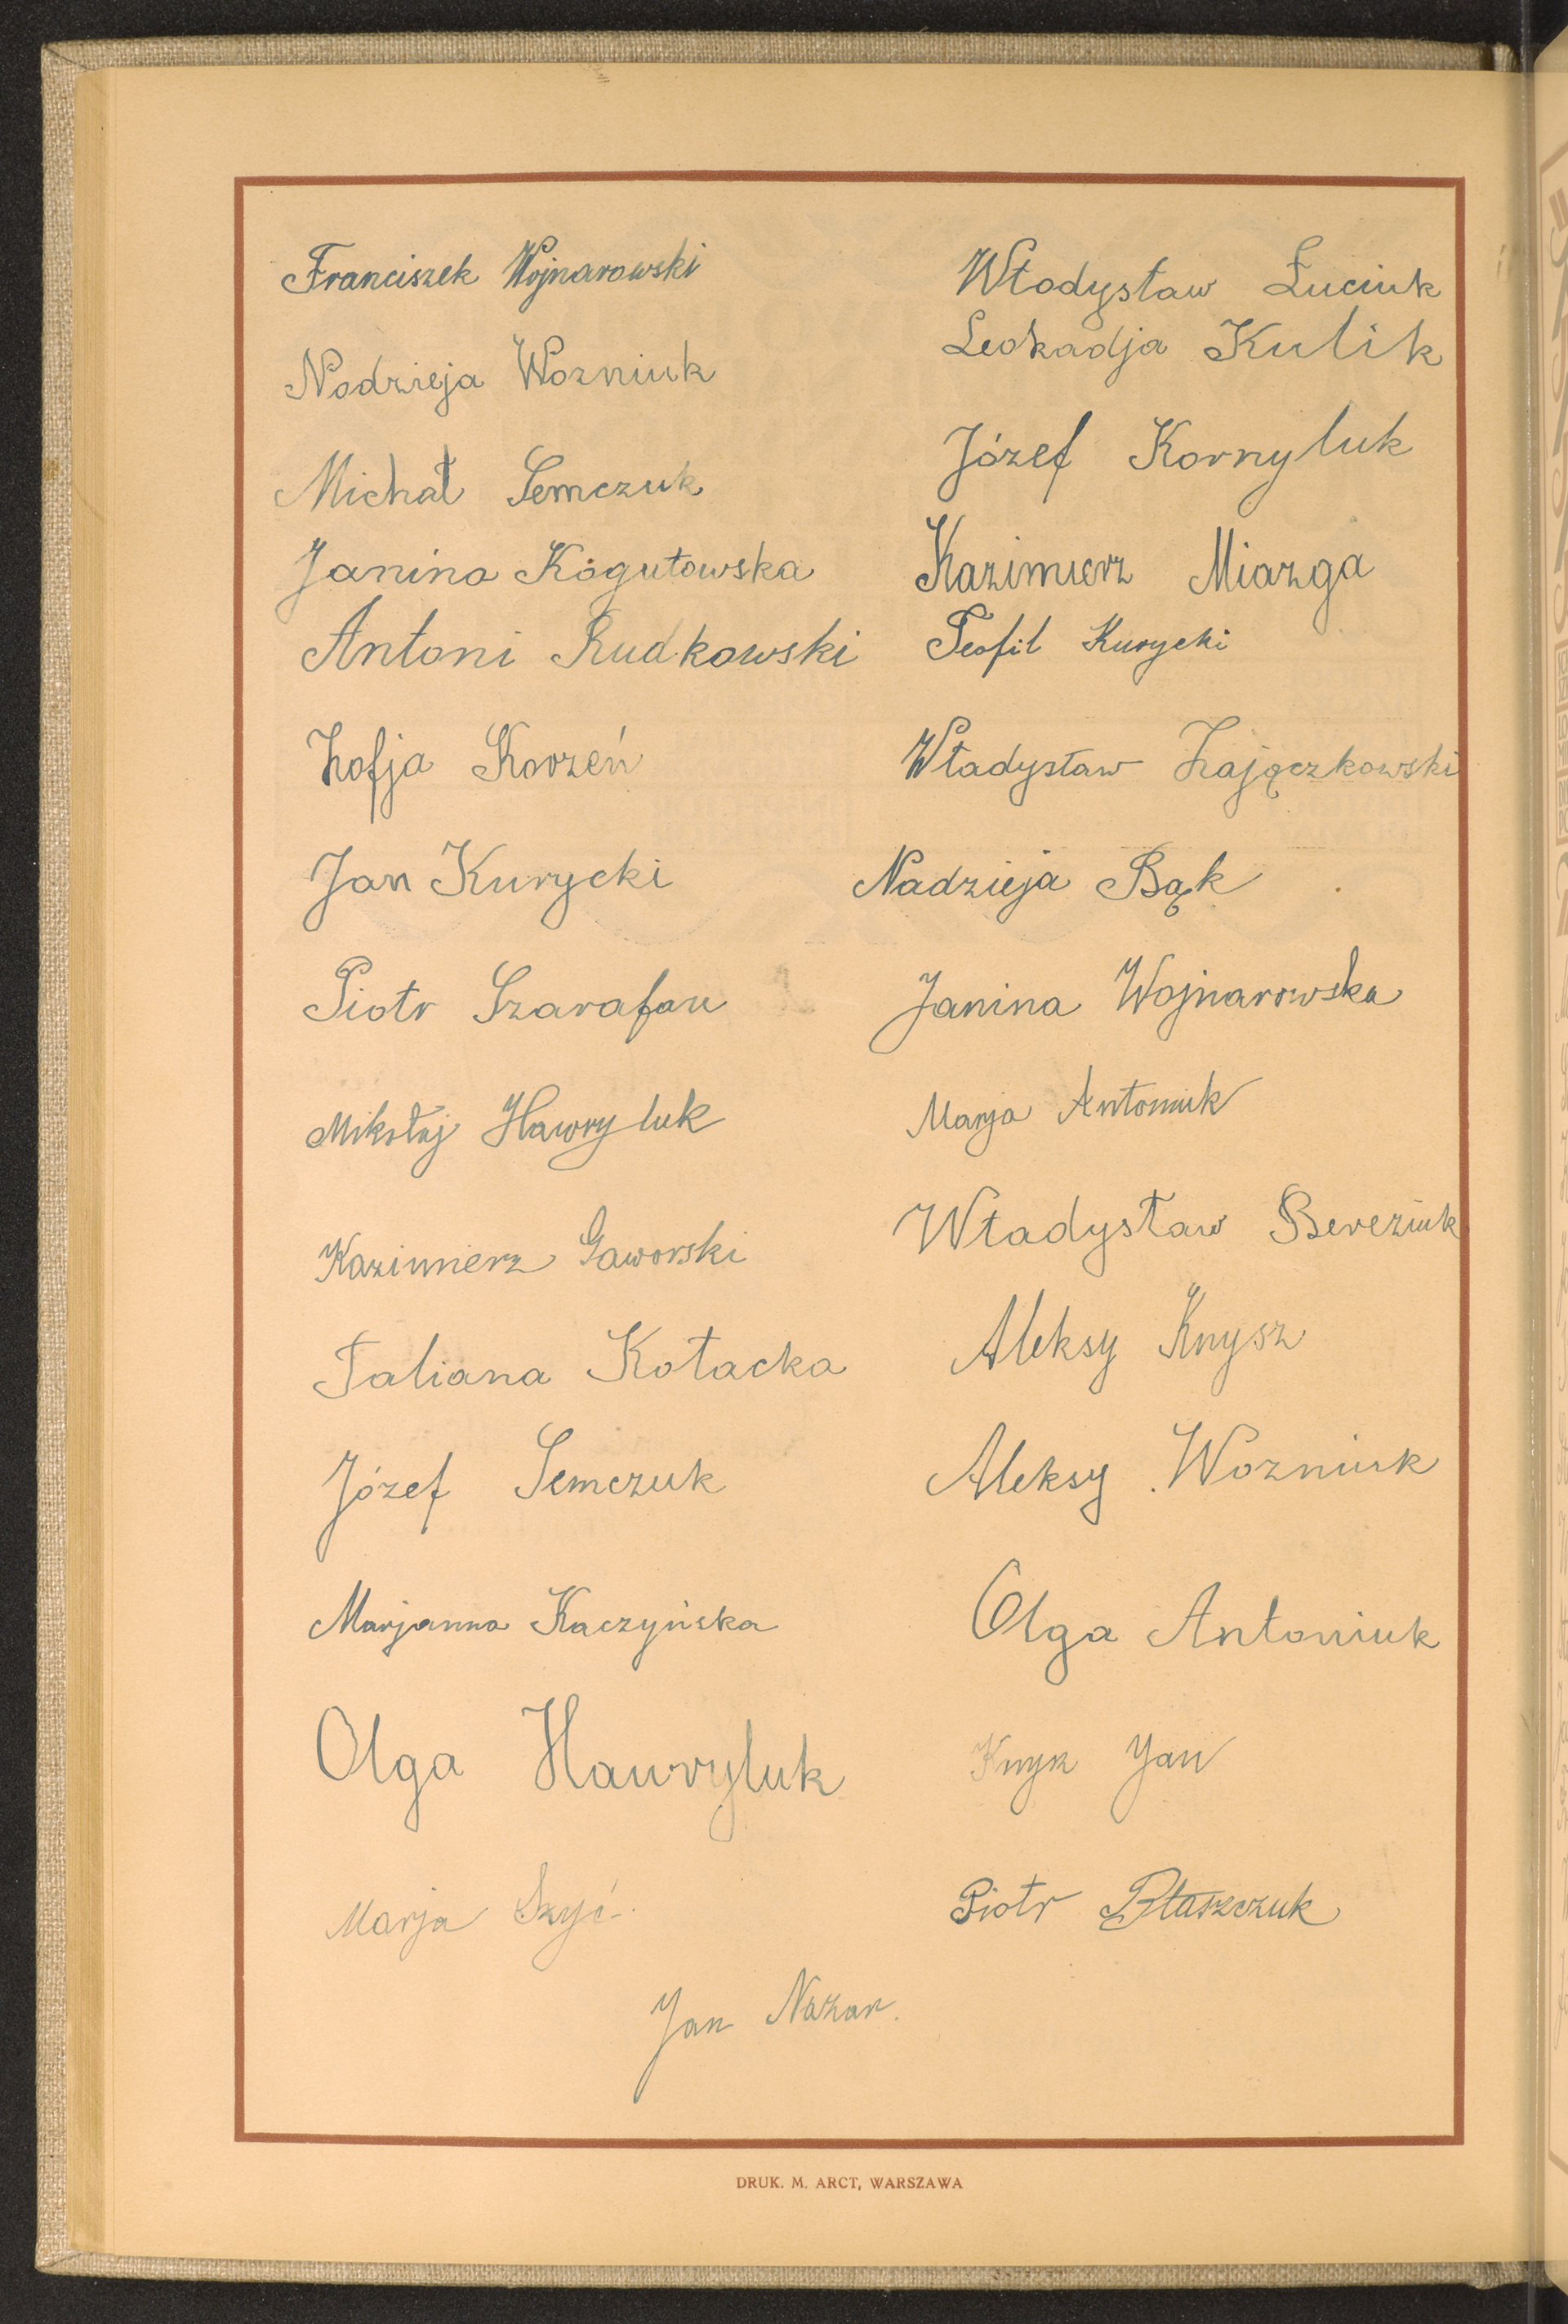 Franciszek Wojnarowski
Nadzieja Wozniuk
Michał Semczuk
Janina Kogutowska
Antoni Rudkowski
Zofja Korzeń
Jan Kurycki
Piotr Szarafan
Mikołaj Hawryluk
Kazimierz Gaworski
Taliana Kotacka
Józef Semczuk
Marjanna Kaczyńska
Olga Hawryluk
Marja Szyć
Włodysław Łuciuk
Leokadja Kulik
Józef Kornyluk
Kazimierz Miazga
Teofil Kurycki
Władysław Zajączkowski
Nadzieja Bąk
Janina Wojnarowska
Marja Antoniuk
Władysław Bereziuk
Aleksy Knysz
Aleksy Wozniuk
Olga Antoniuk
Jan
Piotr Błaszczuk
Jan Nazar.
DRUK. M. ARCT, WARSZAWA